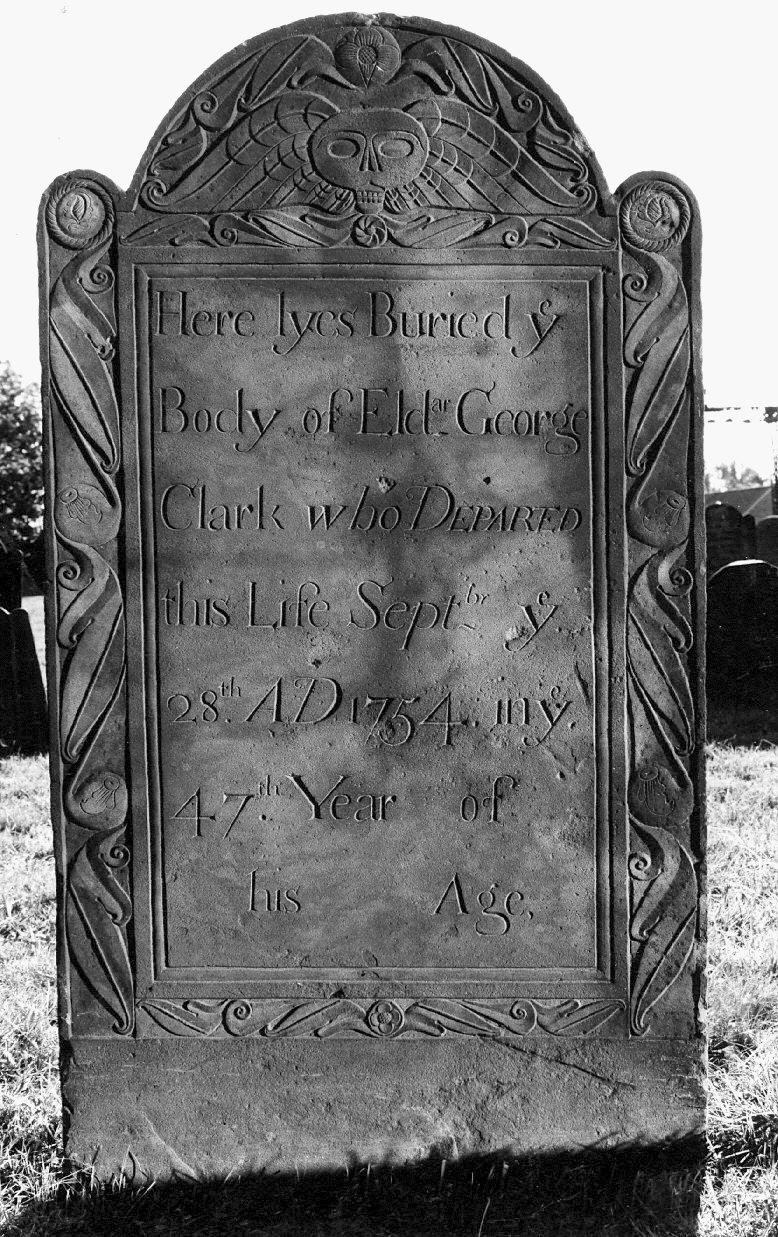 Here lyes Buried yᵉ
Body of Eldᵃʳ. George
Clark who DEPARED
this Life Septᵇʳ yᵉ.
28ᵗʰ. AD. 1754. in yᵉ.
47ᵗʰ. Year of
his Age,